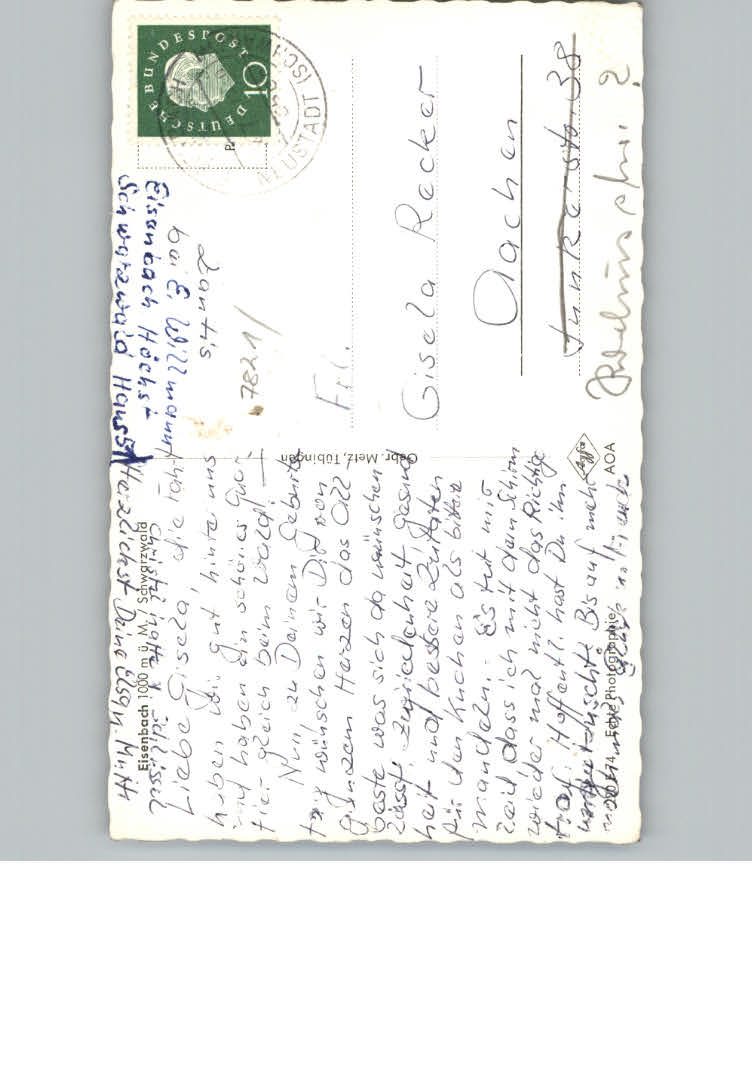 Eisenbach 1000 m ü. M., Schwarzwald
Christel hatte 1 Schlüssel
Liebe Gisela, die Fahrt
haben wir gut hinter uns
und haben ein schönes Quar-
tier gleich beim Wald! –
Nun zu Deinem Geburts
tag wünschen wir Dir von
ganzem Herzen das All-
beste was sich da wünschen
lässt: Zufriedenheit, Gesund
heit und bessere Zutaten
für den Kuchen als bittere
Mandeln. – Es tut mir
leid dass ich mit dem Schirm
wieder mal nicht das Richtige
traf. Hoffentl. hast Du ihn
umgetauscht. Bis auf mehr
Herzlichst Deine Elsa u. Mutti
Echte Photographie
Gebr. Metz, Tübingen
Agfa
AOA
DEUTSCHE BUNDESPOST
10
NEUSTADT (SCHWARZW
Eisenbach Höchst
Schwarzwald Haus 51
bei E. Willmann
7821/
Frl.
Gisela Recker
Aachen
Junkerstr. 38
?